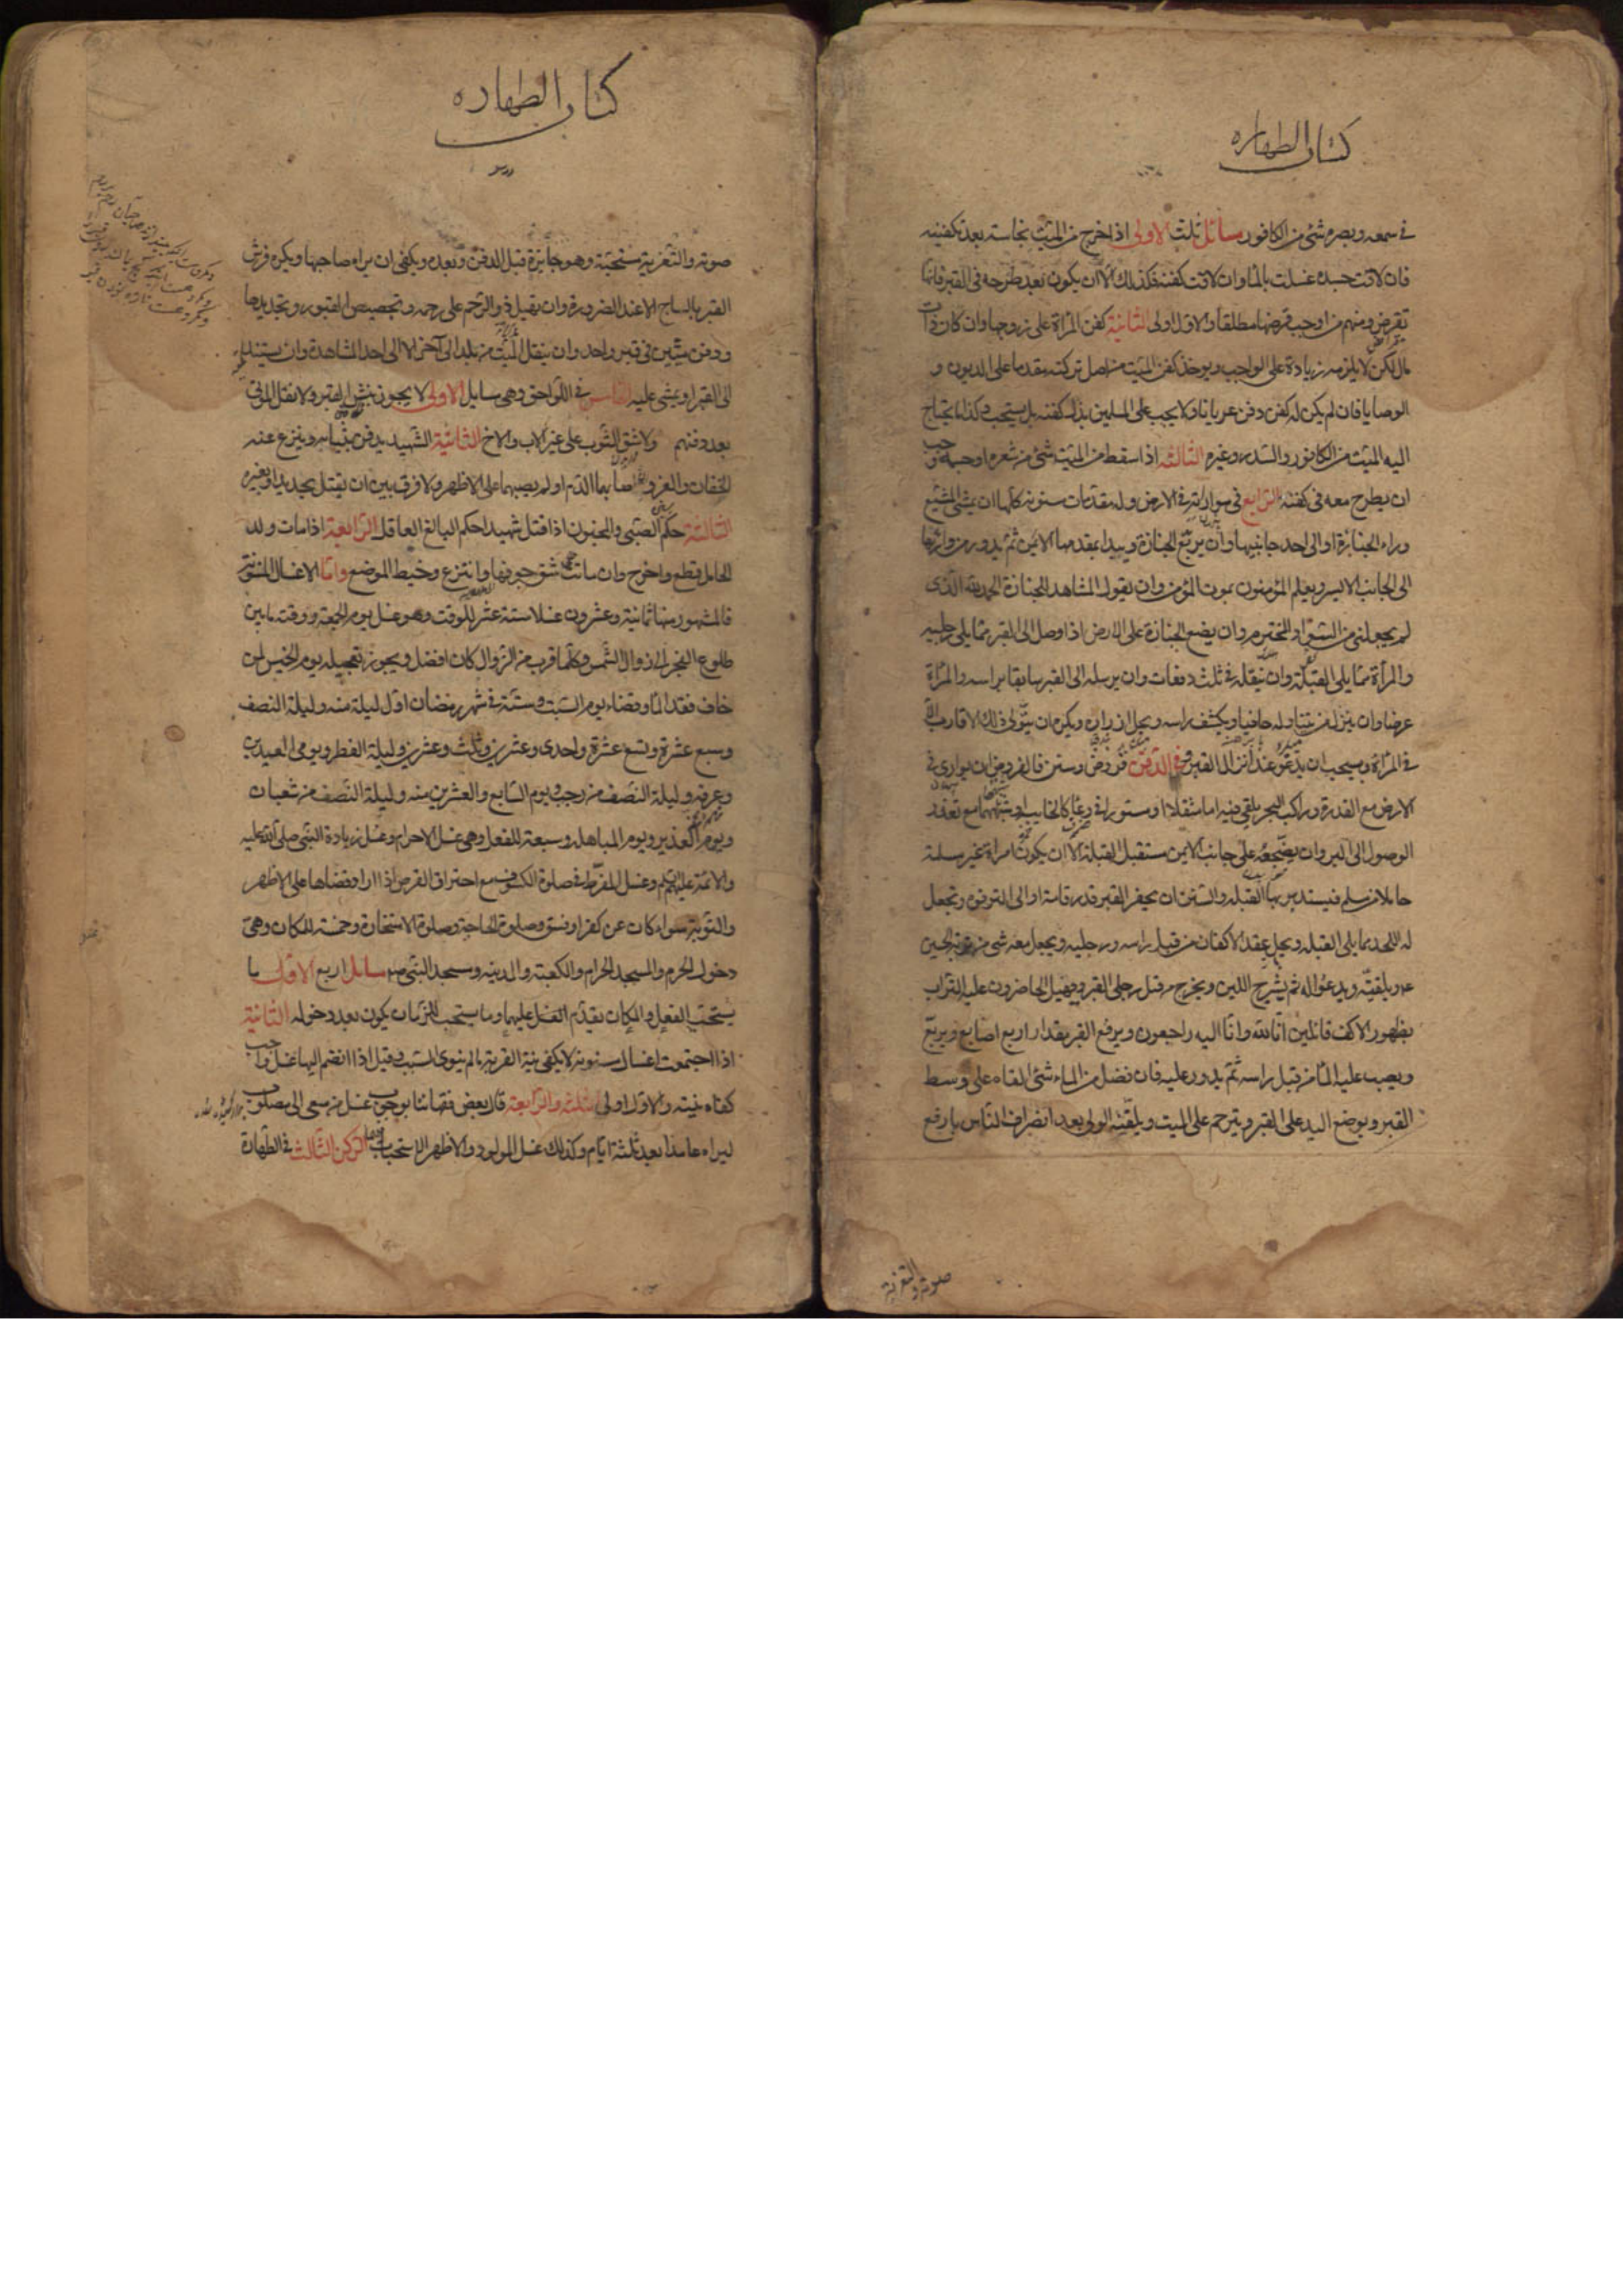 كتاب الطهاره
في سمعه وبصره شئ من الكافور مسائل ثلث الاولى اذا خرج من الميت نجاسة بعد تكفينه
فان لاقت جسده غسلت بالماء وان لاقت كفنه فكذلك الا ان يكون بعد طرحه في القبر فانها
تقرض ومنهم من اوجب قرضها مطلقا والاول اولى الثانية كفن المرأة على زوجها وان كان ذات
مال لكن لا يلزمه زيادة على الواجب ويوخذ كفن الميت من اصل تركته مقدما على الديون و
الوصايا فان لم يكن له كفن دفن عريانا ولا يجب على المسلمين بذل كفنه بل يستحب وكذا ما يحتاج
اليه الميت من الكافور والسدر وغيره الثالثة اذا سقط من الميت شئ من شعره او جسده وجب
ان يطرح معه في كفنه الرابع في مواراته في الارض وله مقدمات مسنونة كلها ان يمشي المشيع
وراء الجنازة او الى احد جانبيها وان يربع الجنازة ويبدا بمقدمها الايمن ثم يدور من ورائها
الى الجانب الايسر ويعلم المؤمنون بموت المؤمن وان يقول المشاهد للجنازة الحمد لله الذى
لم يجعلني من السواد المخترم وان يضع الجنازة على الارض اذا وصل الى القبر مما يلي رجليه
والمرأة مما يلي القبلة وان ينقله في ثلث دفعات وان يرسله الى القبر سابقا براسه والمرأة
عرضا وان ينزل من يتناوله حافيا ويكشف راسه ويحل ازراره ويكره ان يتولى ذلك الاقارب الا
في المرأة ويستحب ان يدعو عند انزاله القبر وفي الدفن فروض وسنن فالفروض ان يوارى في
الارض مع القدرة وراكب البحر يلقى فيه اما مثقلا او مستورا في وعاء كالخابية او شبهها مع تعذر
الوصول الى البر وان يضجعه على جانبه الايمن مستقبل القبلة الا ان يكون امراة غير مسلمة
حاملا من مسلم فيستدبر بها القبله والسنن ان يحفر القبر قدر قامة او الى الترقوة وتجعل
له اللحد مما يلي القبله ويحل عقد الاكفان من قبل راسه ورجليه ويجعل معه شئ من تربة الحسين
ع ويلقنه ويدعو له ثم يشرج اللبن ويخرج من قبل رجلي القبر ويهيل الحاضرون عليه التراب
بظهور الاكف قائلين انا لله وانا اليه راجعون ويرفع القبر مقدار اربع اصابع ويربع
ويصب عليه الماء من قبل راسه ثم يدور عليه فان فضل من الماء شئ القاه على وسط
القبر ويوضع اليد على القبر ويترحم على الميت ويلقنه الولى بعد انصراف الناس بارفع
صوته والتعزية
كتاب الطهاره
صوته والتعزية مستحبة وهو جايزة قبل الدفن وبعده ويكفى ان يراه صاحبها ويكره فرش
القبر بالساج الا عند الضرورة وان يهيل ذو الرحم على رحمه وتجصيص القبور وتجديدها
ودفن ميتين في قبر واحد وان ينقل الميت من بلد الى آخر الا الى احد المشاهدة وان يستند
الى القبر او يمشى عليه الخامس في اللواحق وهى مسايل الاولى لا يجوز نبش القبر ولا نقل الموتى
بعد دفنهم ولا شق الثوب على غير الاب والاخ الثانية الشهيد يدفن بثيابه وينزع عنه
الخفان والفرو اصابهما الدم او لم يصبهما على الاظهر ولا فرق بين ان يقتل بحديد او بغيره
الثالثة حكم الصبي والمجنون اذا قتل شهيدا حكم البالغ العاقل الرابعة اذا مات ولد
الحامل قطع واخرج وان ماتت شق جوفها وانتزع وخيط الموضع واما الاغسال المسنونة
فالمشهور منها ثمانية وعشرون غسلا ستة عشر للوقت وهو غسل يوم الجمعة ووقته ما بين
طلوع الفجر الى زوال الشمس وكلما قرب من الزوال كان افضل ويجوز تعجيله يوم الخميس لمن
خاف فقد الماء وقضاء يوم السبت وستة في شهر رمضان اول ليلة منه وليلة النصف
وسبع عشرة وتسع عشرة واحدى وعشرين وثلث وعشرين وليلة الفطر ويومى العيدين
وعرفه وليلة النصف من رجب ويوم السابع والعشرين منه وليلة النصف من شعبان
ويوم الغدير ويوم المباهله وسبعة للفعل وهى غسل الاحرام وغسل زيادة النبى صلى الله عليه
والائمة عليهم السلم وغسل المفرط في صلوة الكسوف مع احتراق القرص اذا اراد قضاها على الاظهر
والتوبة سواء كان عن كفر او فسق وصلوة الحاجة وصلوة الاستخارة وخمسة للمكان وهى
دخول الحرم والمسجد الحرام والكعبة والمدينه ومسجد النبي صم مسائل اربع الاولى ما
يستحب للفعل والمكان يقدم الغسل عليهما وما يستحب للزمان يكون بعد دخوله الثانية
اذا اجتمعت اغسال مسنونة لا يكفى نية القربة ما لم ينوى السبب وقيل اذا انضم اليها غسل واجب
كفاه نيته والاول اولى الثالثة والرابعة قال بعض فقهائنا بوجوب غسل من سعى الى مصلوب
ليراه عامدا بعد ثلثة ايام وكذلك غسل المولود والاظهر الاستحباب الركن الثالث في الطهارة